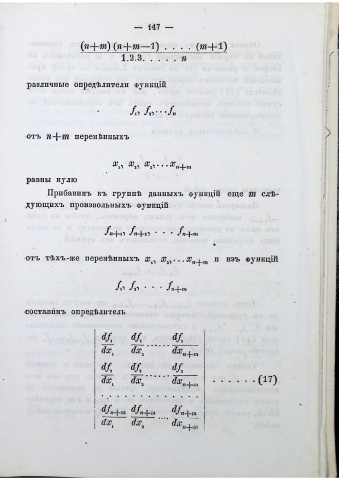 — 147 —
(n+m)(n+m—1) . . . . (m+1)
1.2.3. . . . . . n
различные опредѣлители функцій
f₁, f₂, . . . fₙ
отъ n+m перемѣнныхъ
x₁, x₂, x₃, . . . xₙ₊ₘ
равны нулю
Прибавимъ къ группѣ данныхъ функцій еще m слѣ-
дующихъ произвольныхъ функцій
fₙ₊₁, fₙ₊₂, . . . fₙ₊ₘ
отъ тѣхъ-же перемѣнныхъ x₁, x₂, . . . xₙ₊ₘ и изъ функцій
f₁, f₂, . . . fₙ₊ₘ
составимъ опредѣлитель
df₁ df₁ df₁
dx₁ dx₂ ...... dxₙ₊ₘ
df₂ df₂ df₂
dx₁ dx₂ ...... dxₙ₊ₘ . . . . . . (17)
. . . . . . . . . . . . . .
dfₙ₊ₘ dfₙ₊ₘ dfₙ₊ₘ
dx₁ dx₂ .... dxₙ₊ₘ